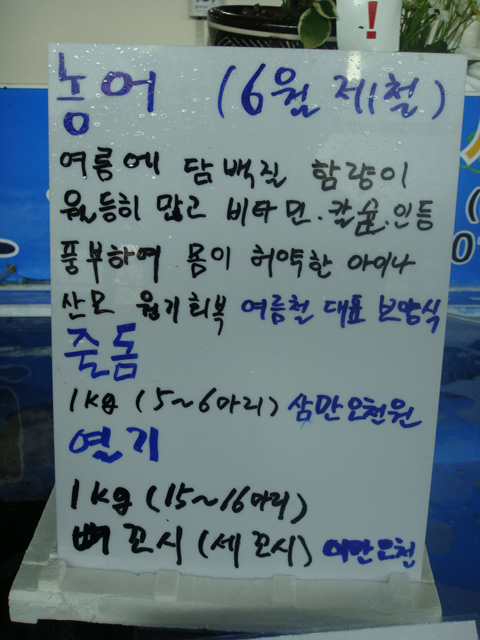 농어 (6월 제철)
여름에 담백질 함량이
월등히 많고 비타민.칼슘.인등
풍부하여 몸이 허약한 아이나
산모 원기회복 여름철 대표 보양식
줄돔
1kg (5~6마리) 삼만오천원
열기
1kg (15~16마리)
뼈꼬시 (세꼬시) 이만오천
!